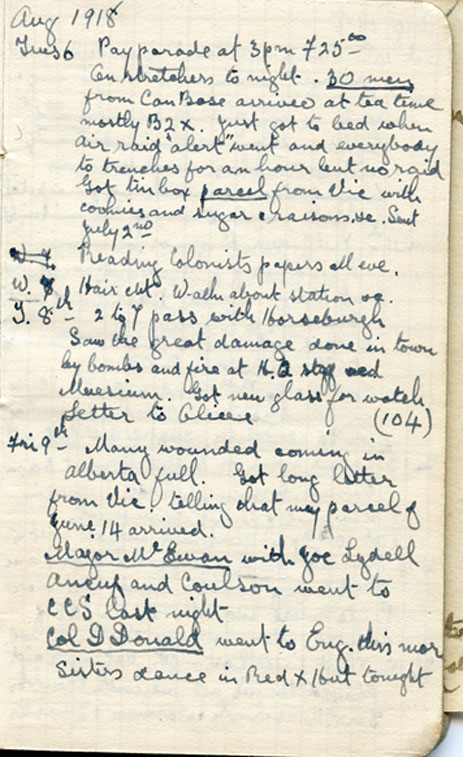 Aug 1918
Tues 6 Pay parade at 3pm 725⁰⁰
On stretchers to night. 30 men
from Can Base arrived at tea time
mostly B2x. Just got to bed when
air raid "alert" went and everybody
to trenches for an hour but no raid
Got tin box parcel from Vic with
cookies and sugar & raisons. &c. Sent
July 2nd
W 7 Reading Colonists papers all eve.
W. Hair cut. Walk about station &c.
T. 8th 2 to 7 pass with Horseburgh
Saw the great damage done in town
by bombs and fire at H.Q staff and
Muesium. Got new glass for watch
Letter to Alice (104)
Fri 9th Many wounded coming in
alberta full. Got long letter
from Vic. telling that my parcel of
June 14 arrived.
Major McEwan with Joe Lydell
and Coulson went to
C C S last night
Col D Donald went to Eng. this mor
Sisters dance in Red X Hut tonight